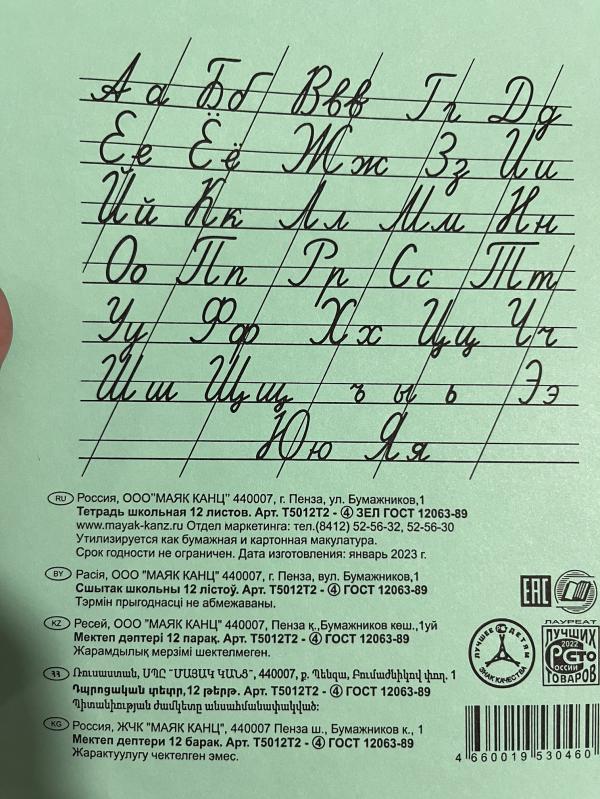 А а Б б В в в Г г Д д
Е е Ё ё Ж ж З з И и
Й й К к Л л М м Н н
О о П п Р р С с Т т
У у Ф ф Х х Ц ц Ч ч
Ш ш Щ щ ъ ы ь Э э
Ю ю Я я
RU Россия, ООО"МАЯК КАНЦ" 440007, г. Пенза, ул. Бумажников,1
Тетрадь школьная 12 листов. Арт. Т5012Т2 - ④ ЗЕЛ ГОСТ 12063-89
www.mayak-kanz.ru Отдел маркетинга: тел.(8412) 52-56-32, 52-56-30
Утилизируется как бумажная и картонная макулатура.
Срок годности не ограничен. Дата изготовления: январь 2023 г.
BY Расія, ООО "МАЯК КАНЦ" 440007, г. Пенза, вул. Бумажников,1
Сшытак школьны 12 лістоў. Арт. Т5012Т2 - ④ ГОСТ 12063-89
Тэрмін прыгоднасці не абмежаваны.
KZ Ресей, ООО "МАЯК КАНЦ" 440007, Пенза қ.,Бумажников көш.,1уй
Мектеп дәптері 12 парақ. Арт. Т5012Т2 - ④ ГОСТ 12063-89
Жарамдылық мерзімі шектелмеген.
ՀՀ Ռուսաստան, ՍՊԸ "ՄԱՅԱԿ ԿԱՆՑ", 440007, ք. Պենզա, Բումաժնիկով փող. 1
Դպրոցական տետր,12 թերթ. Арт. Т5012Т2 - ④ ГОСТ 12063-89
Պիտանիության ժամկետը անսահմանափակված:
KG Россия, ЖЧК "МАЯК КАНЦ", 440007 Пенза ш., Бумажников к., 1
Мектеп дептери 12 барак. Арт. Т5012Т2 - ④ ГОСТ 12063-89
Жарактуулугу чектелген эмес.
EAC
ЛУЧШЕЕ ДЕТЯМ
ЗНАК КАЧЕСТВА
ЛАУРЕАТ
ЛУЧШИХ
2022
СТО
РОССИИ
ТОВАРОВ
4 660019 530460